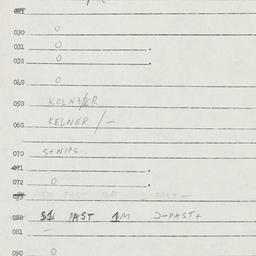 030 0
031 0
032 0
040 0
050 KOLNER
060 KELNER / -
070 S+NIPS
071
072 0
073
080 31 PAST 1M 2-PAST+
081 -
090 0